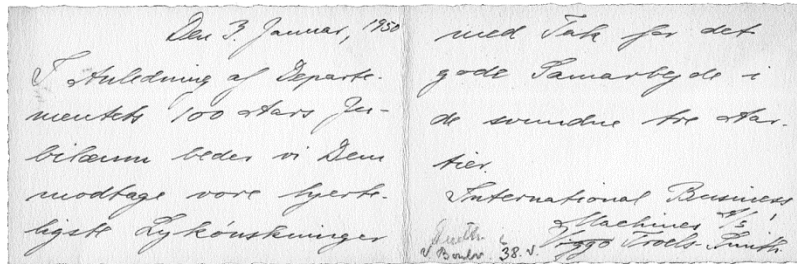 Den 3. Januar, 1950
I Anledning af Departe-
mentets 100 Aars Ju-
bilæum beder vi Dem
modtage vore hjerte-
ligste Lykønskninger
med Tak for det
gode Samarbejde i
de svundne tre Aar-
tier.
International Business
Machines A/S
Viggo Troels-Smith
38. v.